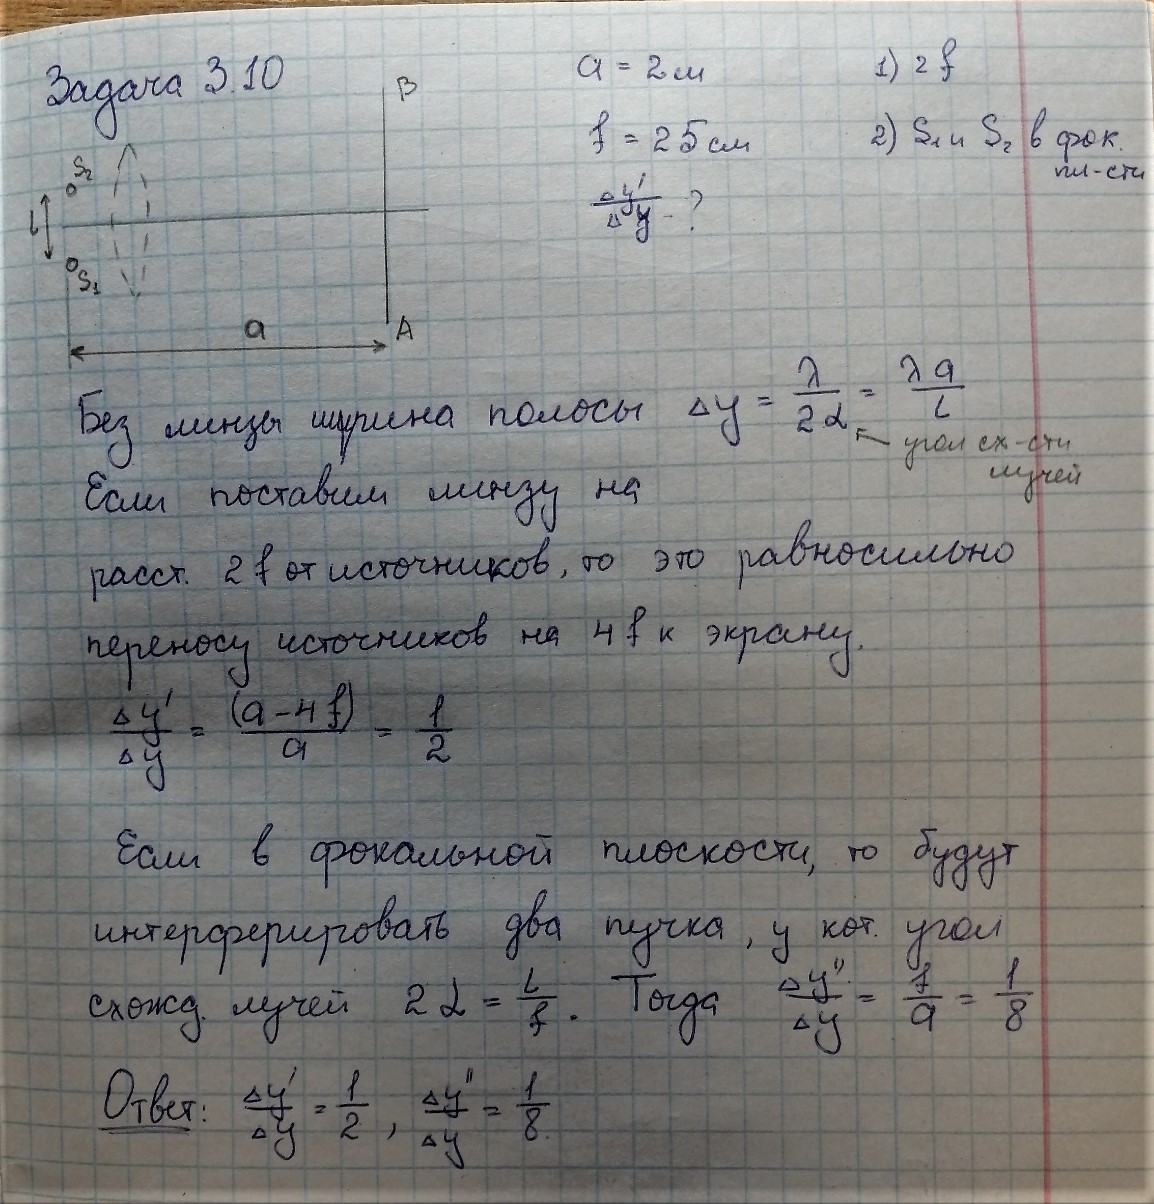 Задача 3.10
a = 2 м
1) 2 f
f = 25 см
2) S₁ и S₂ в фок.
пл-сти
Δy'/Δy - ?
B
S₂
L
S₁
a
A
Без линзы ширина полосы Δy = λ/2α = λa/L
угол сх-сти
лучей
Если поставим линзу на
расст. 2 f от источников, то это равносильно
переносу источников на 4 f к экрану.
Δy'/Δy = (a - 4 f)/a = 1/2
Если в фокальной плоскости, то будут
интерферировать два пучка, у кот. угол
схожд. лучей 2α = L/f. Тогда Δy''/Δy = f/a = 1/8
Ответ: Δy'/Δy = 1/2, Δy''/Δy = 1/8.